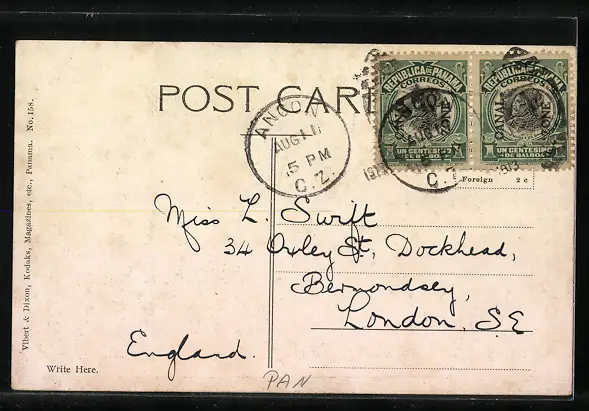 POST CARD
REPUBLICA DE PANAMA
CORREOS
CANAL ZONE
1 UN CENTESIMO 1
DE BALBOA
REPUBLICA DE PANAMA
CORREOS
CANAL ZONE
1 UN CENTESIMO 1
DE BALBOA
ANCON
AUG 11
5 PM
C. Z.
Foreign 2 c
Miss L. Swift
34 Oxley St, Dockhead,
Bermondsey,
London, S E
England.
Write Here.
PAN
Vibert & Dixon, Kodaks, Magazines, etc., Panama. No. 158.